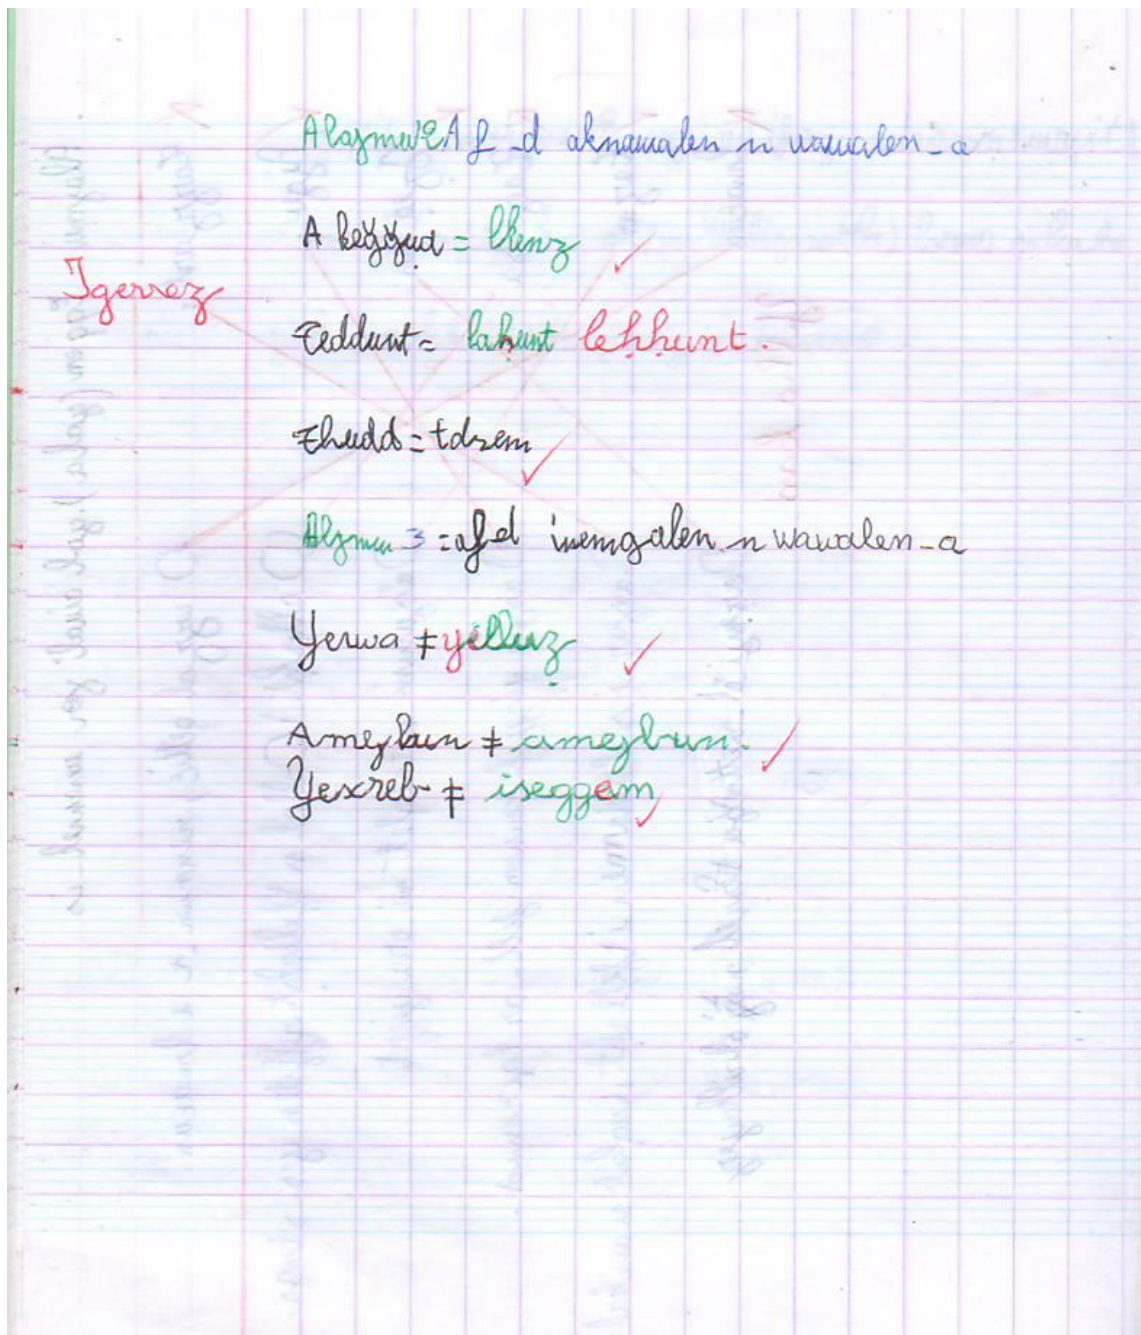 Alazmul 2 Af_d aknawalen n wawalen_a
A keɣɣuḍ = lkenz
Igerrez
teddunt = laḥunt leḥḥunt.
thudd = tdrem
Alɣmu 3 = af_d inemgalen n wawalen_a
Yerwa ≠ yelluẓ
Ameɣbun ≠ ameɣbun.
Yexreb ≠ iseggem